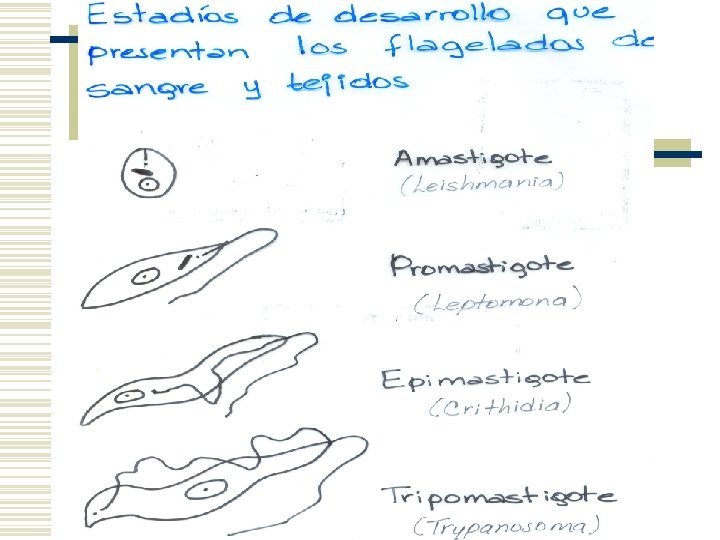 Estadíos de desarrollo que
presentan los flagelados de
sangre y tejidos
Amastigote
(Leishmania)
Promastigote
(Leptomona)
Epimastigote
(Crithidia)
Tripomastigote
(Trypanosoma)